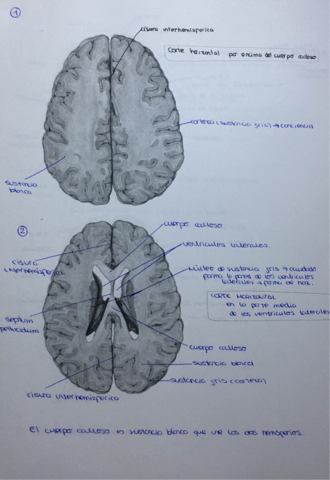 1
cisura interhemisférica
Corte horizontal por encima del cuerpo calloso.
corteza (sustancia gris) → conciencia
sustancia
blanca
2
cuerpo calloso
ventrículos laterales.
cisura
interhemisférica
Núcleo de sustancia gris → caudado
forma la pared de los ventrículos
laterales
CORTE HORIZONTAL
en la parte media
de los ventrículos laterales
septum
pellucidum
cuerpo calloso
sustancia blanca
sustancia gris (corteza)
cisura interhemisférica
El cuerpo calloso es sustancia blanca que une los dos hemisferios.